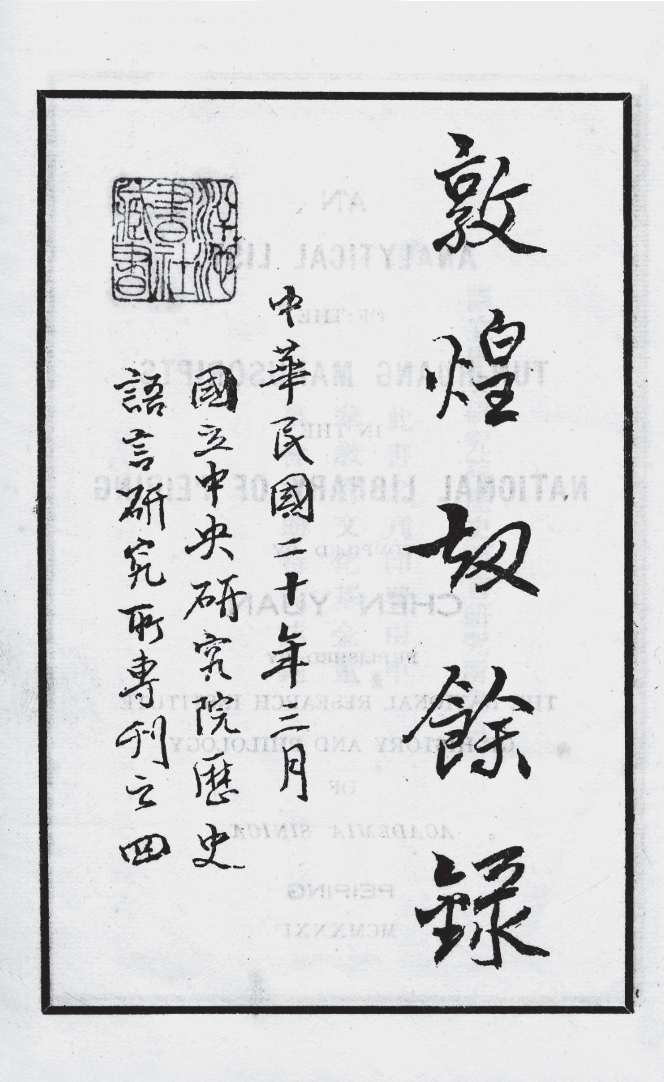 敦煌刼餘錄
中華民國二十年三月
國立中央研究院歷史
語言研究所專刊之四
書社
藏書